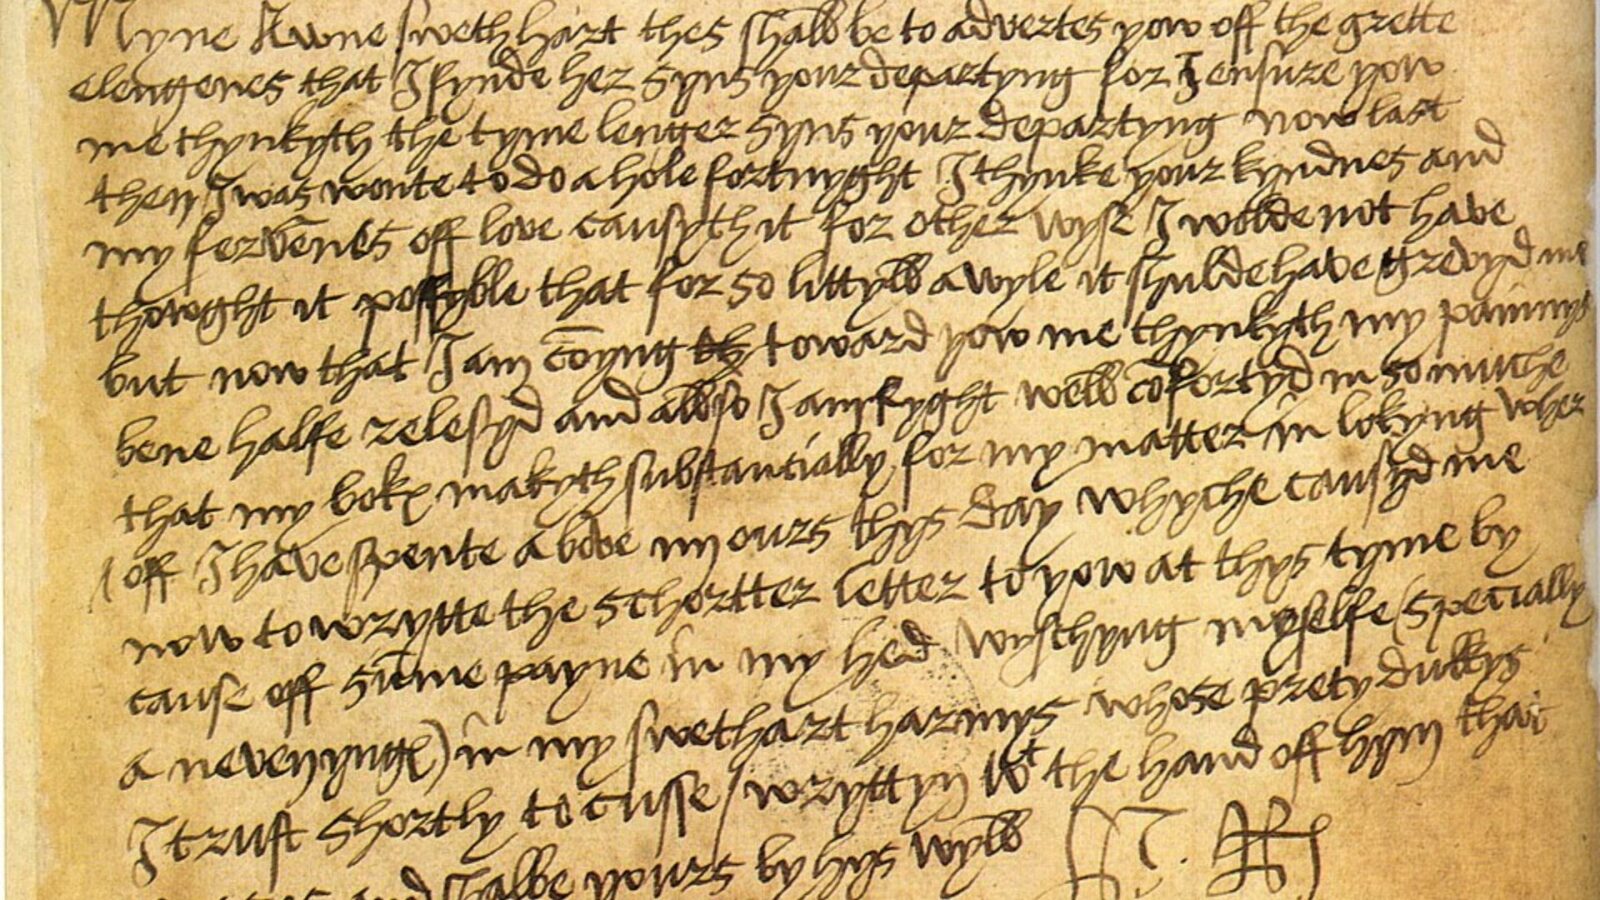 Myne Awne swethhart thes shall be to advertes yow off the grette
elengenes that I fynde her syns your departyng for I ensure yow
me thynkyth the tyme lenger syns your departyng now last
then I was wonte to do a hole fortnyght I thynke your kyndnes and
my fervēnes off love causyth it for other wyse I wolde not have
thowght it possyble that for so littyll a wyle it shulde have grevyd me
but now that I am cōmyng toward yow me thynkyth my painnys
bene halfe relesyd and allso I am ryght well cōfortyd in so muche
that my boke makyth substancially for my matter in lokyng wher
off I have spente above iiij ours thys day whyche causyd me
now to wrytte the schortter letter to yow at thys tyme by
cause off sūme payne in my hed wyschyng myselfe (specially
a nevenynge) in my swethart harmys whose prety dukkys
I trust shortly to cusse wryttyn wt the hand off hym that
and shalbe yours by hys wyll